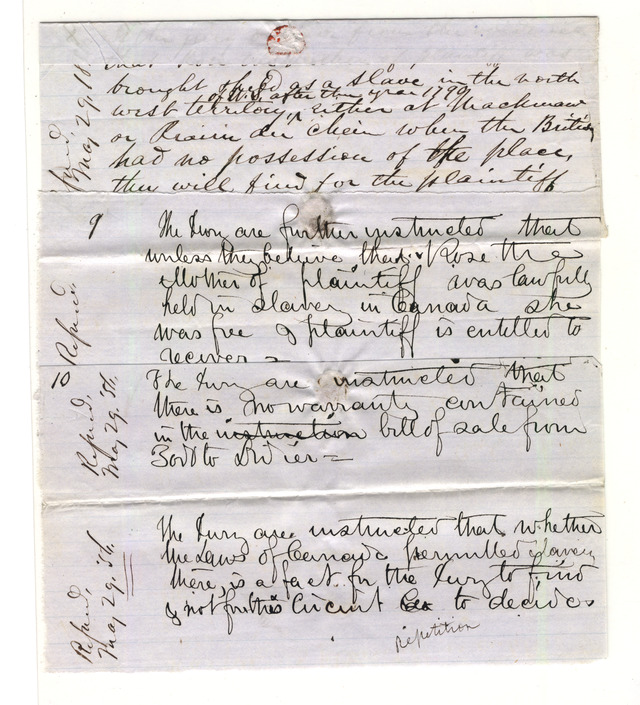 brought & held as a slave in the north
of U.S. after the year 1790
west territory, either at Mackinaw
or Prairie du Chein when the British
had no possession of the place,
they will find for the plaintiff
Refused,
May 29. 58
9
The Jury are further instructed that
unless they believe that Rose the
Mother of plaintiff was lawfully
held in Slavery in Canada she
was free & plaintiff is entitled to
recover =
Refused
10
The Jury are instructed that
there is no warranty contained
in the instruction bill of sale from
to Didier =
Refused,
May 29. 58.
The Jury are instructed that whether
the Laws of Canada permitted slavery
there, is a fact for the Jury to find
& not for this Circuit to decide
Refused,
May 29. 58.
repetition